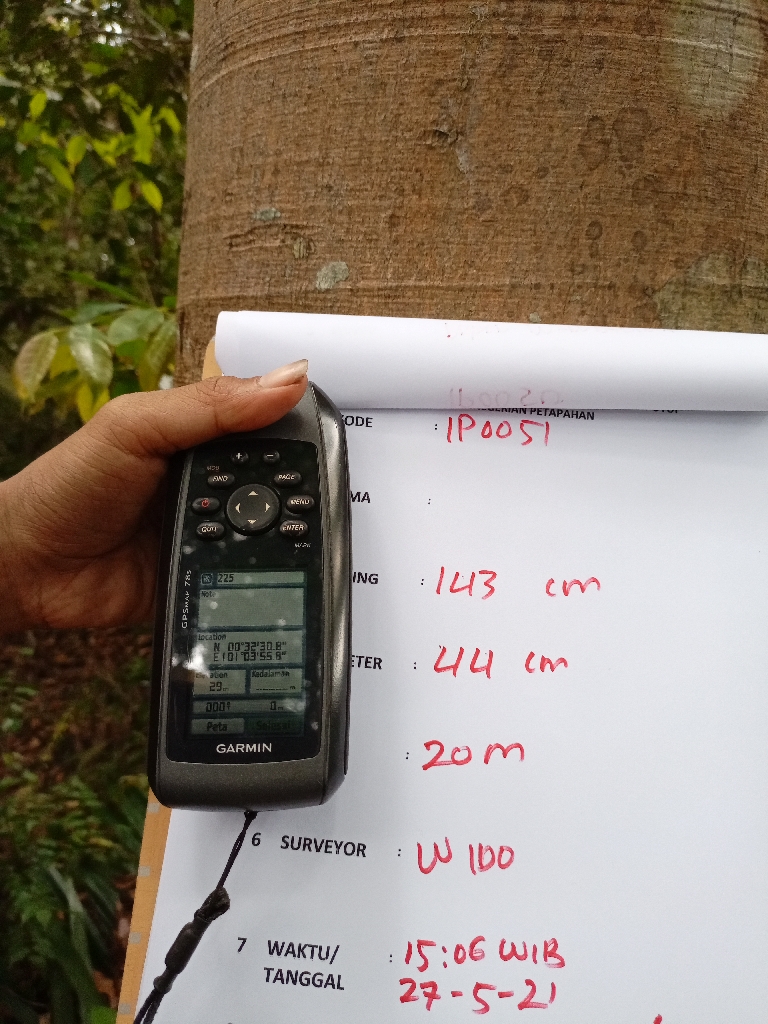 GERIAN PETAPAHAN
ODE : IP0051
MA :
ING : 143 cm
ETER : 44 cm
: 20 m
6 SURVEYOR : W 100
7 WAKTU/ TANGGAL : 15:06 WIB
27-5-21
MOB
FIND
PAGE
MENU
QUIT
ENTER
MARK
GPSMAP 78s
225
Note
Location
N 00°32'30.8"
E101°03'55.8"
Elevation
Kedalaman
29m
000°
0m
Peta
GARMIN